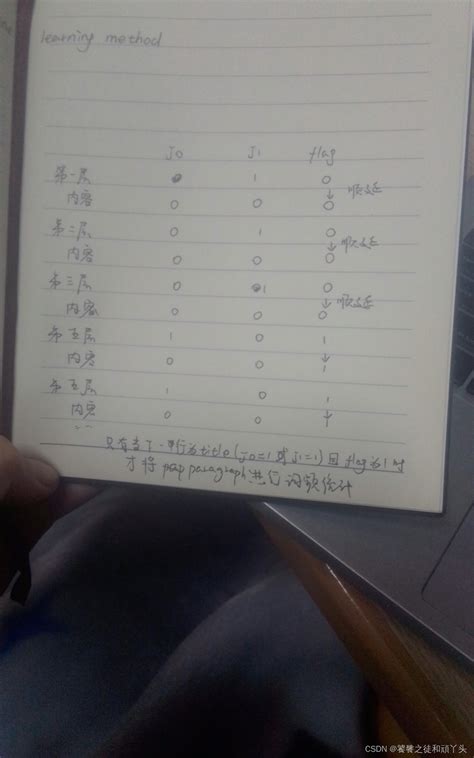 learning method
J0 J1 flag
第一层 1 0
↓ 顺延
内容 0 0 0
第二层 0 1 0
↓ 顺延
内容 0 0 0
第三层 0 1 0
↓ 顺延
内容 0 0 0
第五层 1 0 1
↓
内容 0 0 1
第五层 1 0 1
↓
内容 0 0 1
只有当下一行为title(J0=1或J1=1)且flag为1时
才将paragraph进行词频统计
CSDN @饕餮之徒和顽丫头